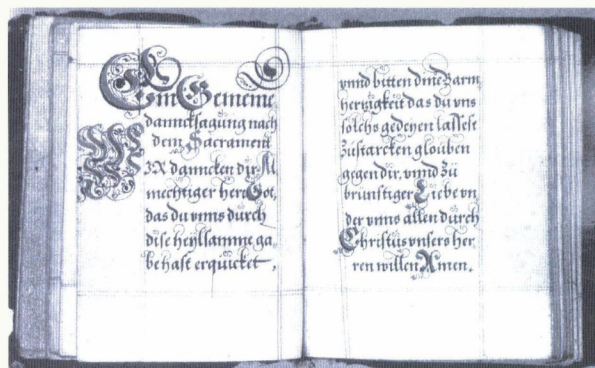 Ein Gemeine
dancksagung nach
dem Sacrament
WIR dancken dir Al
mechtiger herr Got,
das du vnns durch
dise heylsamme ga
be hast erquicket,
vnnd bitten dine Barm
hertzigkeit das du vns
solchs gedeyen lassest
zů starcken glouben
gegen dir, vnnd zů
brunstiger Liebe vn
der vnns allen durch
Christus vnsers her
ren willen Amen.